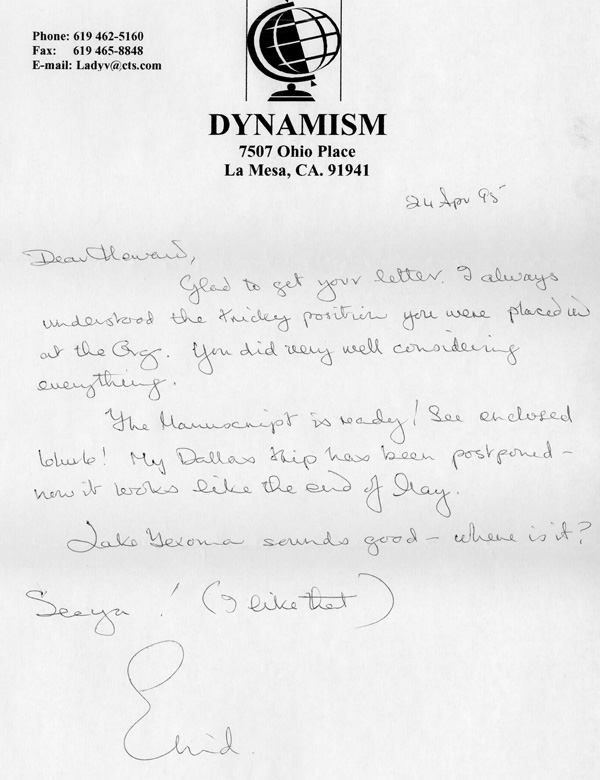 Phone: 619 462-5160
Fax: 619 465-8848
E-mail: Ladyv@cts.com
DYNAMISM
7507 Ohio Place
La Mesa, CA. 91941
24 Apr 95
Dear Howard,
Glad to get your letter. I always
understood the tricky position you were placed in
at the Org. You did very well considering
everything.
The Manuscript is ready! See enclosed
blurb! My Dallas trip has been postponed –
now it looks like the end of May.
Lake Texoma sounds good – where is it?
Seeya! (I like that)
Enid.